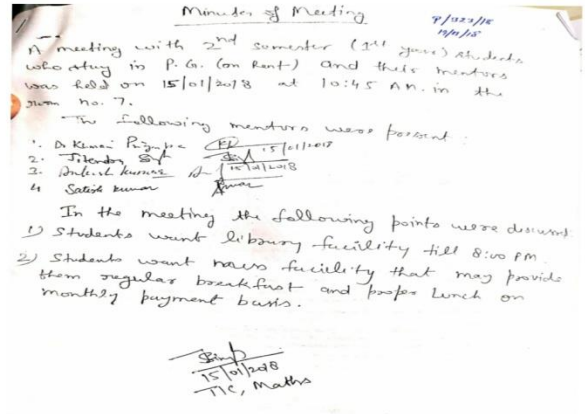 Minutes of Meeting
A meeting with 2nd semester (1st year) students
who stay in P.G. (on Rent) and their mentors
was held on 15/01/2018 at 10:45 AM. in the
room no. 7.
The following mentors were present:
1. Dr Kumari Priyanka 15/01/2018
2. Jitendra
3. Kumar 15/01/2018
4 Satish Kumar
In the meeting the following points were discussed
1) Students want library facility till 8:00 PM.
2) Students want mess facility that may provide
them regular breakfast and proper lunch on
monthly payment basis.
15/01/2018
TIC, Maths